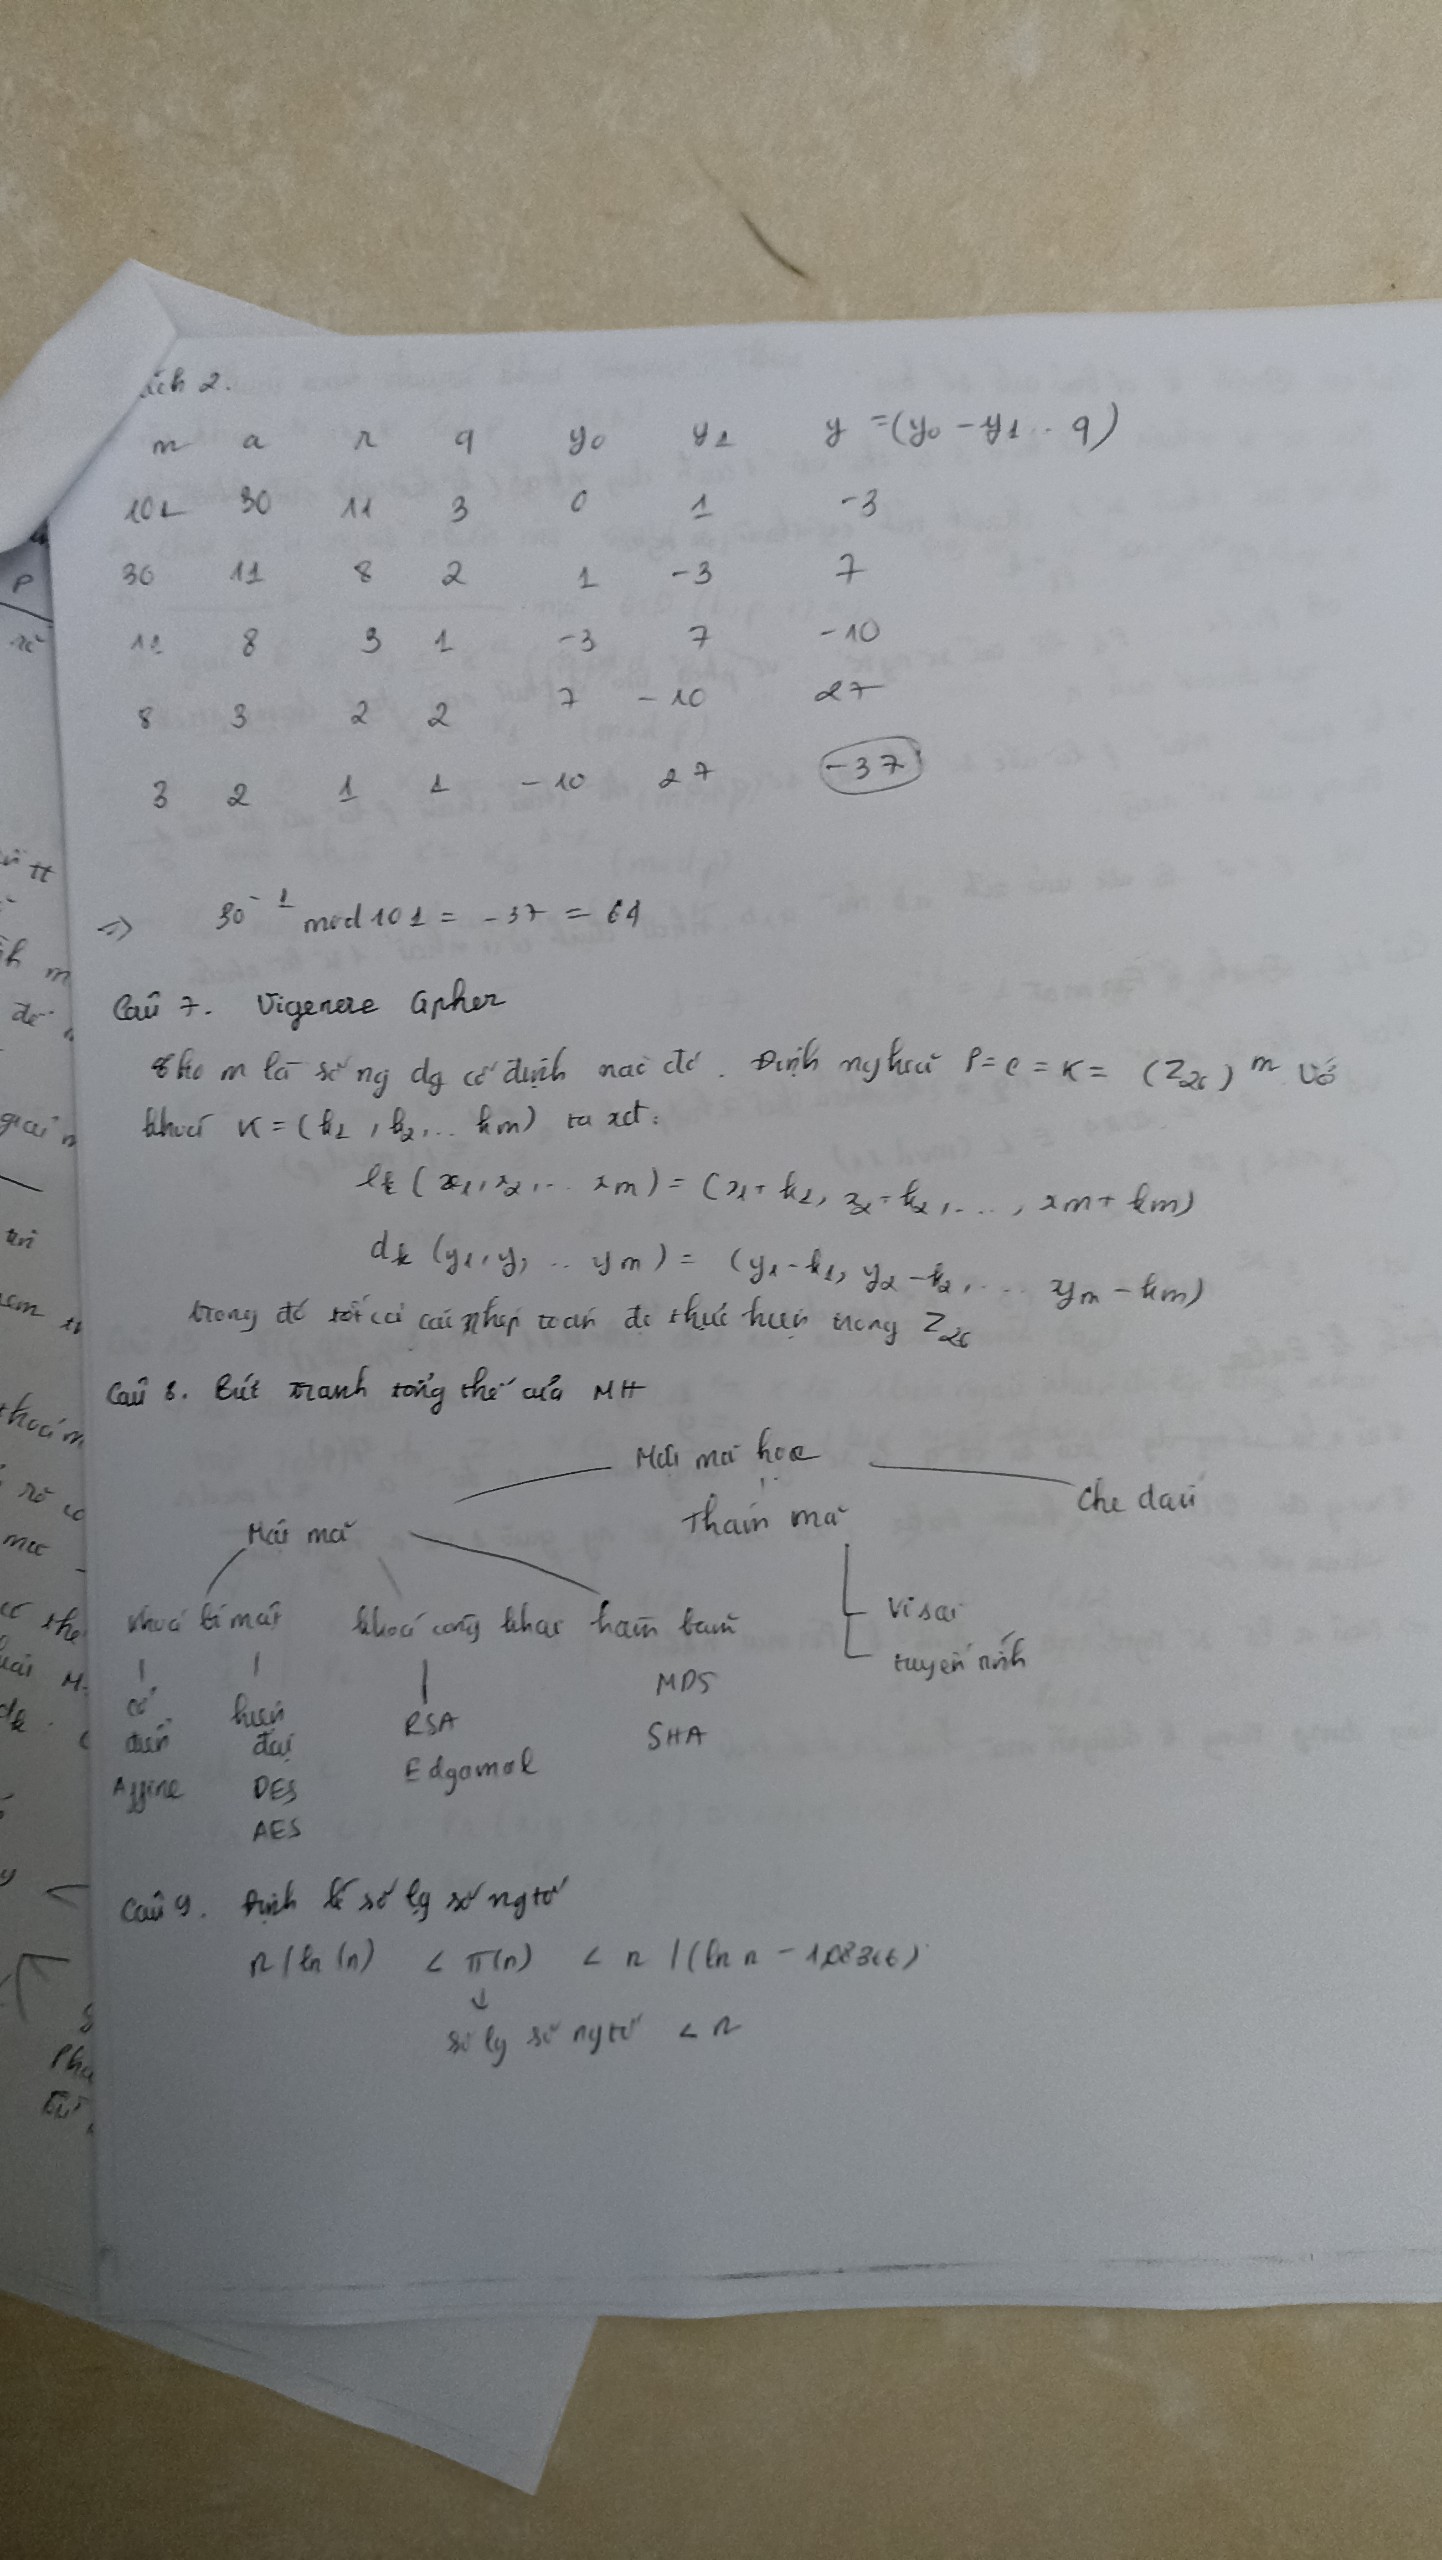 ách 2.
n a r q y0 y1 y = (y0 - y1 . q)
101 30 11 3 0 1 -3
30 11 8 2 1 -3 7
11 8 3 1 -3 7 -10
8 3 2 2 7 -10 27
3 2 1 1 -10 27 -37
=> 30^-1 mod 101 = -37 = 64
Câu 7. Vigenere Cipher
Cho m là số ng dg cố định nào đó. Định nghĩa P = C = K = (Z26)^m Với
khoá K = (k1, k2, .. km) ta xđ:
ek (x1, x2, .. xm) = (x1 + k1, x2 + k2, ..., xm + km)
dk (y1, y, .. ym) = (y1 - k1, y2 - k2, ... ym - km)
trong đó tất cả các phép toán đc thực hiện trong Z26
Câu 8. Bức tranh tổng thể của MH
Mật mã học
Mật mã Thám mã Che dấu
khoá bí mật khoá công khai hàm băm Vi sai
tuyến tính
cổ điển hiện đại RSA MD5
Affine DES Edgamal SHA
AES
Câu 9. Định lí số lg số ng tố
n / ln (n) < π(n) < n / (ln n - 1,08366)
↓
số lg số ng tố < n